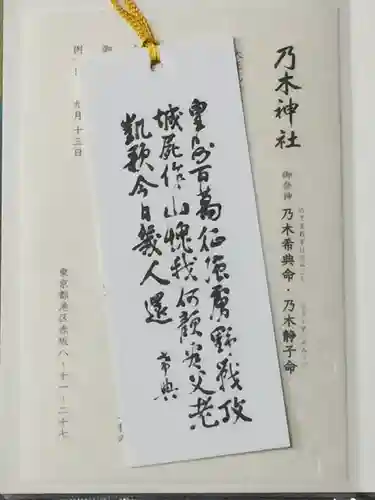 乃木神社
御祭神 乃木希典命・乃木静子命
皇師百萬征強虜野戦攻
城屍作山愧我何顔看父老
凱歌今日幾人還
希典
例
九月十三日
東京都港区赤坂八ー十一ー二十七